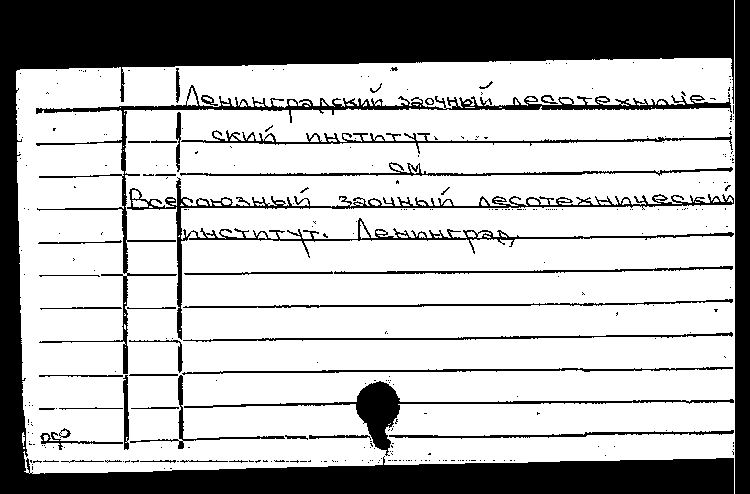 Ленинградский заочный лесотехниче-
ский институт. ...
см.
Всесоюзный заочный лесотехнический
институт. Ленинград